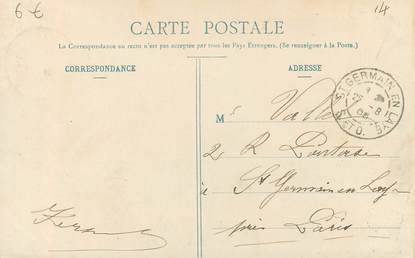 6 €
14
CARTE POSTALE
La Correspondance au recto n'est pas acceptée par tous les Pays Etrangers. (Se renseigner à la Poste.)
CORRESPONDANCE
ADRESSE
ST GERMAIN EN LAYE
S. ET O.
M
2 R Pontoise
à St Germain en Laye
près Paris